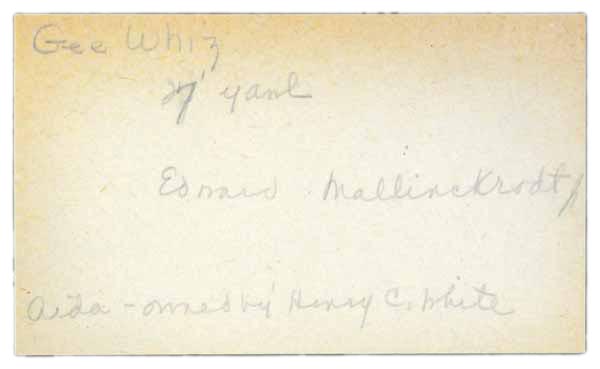 Gee Whiz
yawl
Edward Mallinckrodt
Aida - owned by Henry C. White